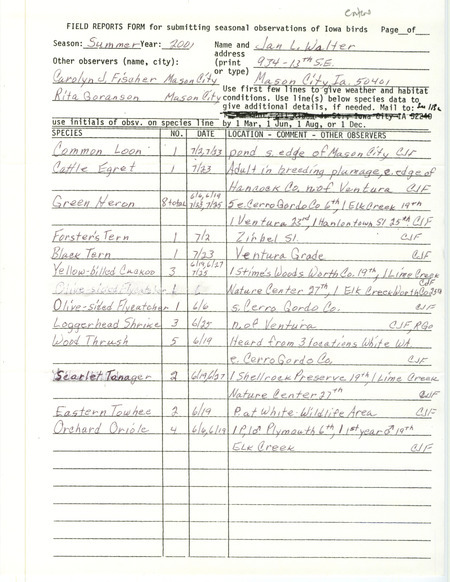 enter
FIELD REPORTS FORM for submitting seasonal observations of Iowa birds Page__of__
Season: Summer Year: 2001 Name and address (print or type) Jan L. Walter
Other observers (name, city): 934-12TH S.E.
Carolyn J. Fischer Mason City Mason City, Ia. 50401
Rita Goranson Mason City
Use first few lines to give weather and habitat
conditions. Use line(s) below species data to
give additional details, if needed. Mail to:
use initials of obsv. on species line by 1 Mar, 1 Jun, 1 Aug, or 1 Dec.
SPECIES NO. DATE LOCATION - COMMENT - OTHER OBSERVERS
Common Loon 1 7/2, 7/23 pond s. edge of Mason City CJF
Cattle Egret 1 7/23 Adult in breeding plumage, e. edge of
Hancock Co. n. of Ventura CJF
Green Heron 8 total 6/6, 6/19 7/23, 7/25 5 e. Cerro Gordo Co. 6th, 1 Elk Creek 19th
1 Ventura 23rd, 1 Hanlontown Sl. 25th, CJF
Forster's Tern 1 7/2 Zirbel Sl. CJF
Black Tern 1 7/23 Ventura Grade CJF
Yellow-billed Cuckoo 3 6/19, 6/27 7/25 1 Stime's Woods Worth Co. 19th, 1 Lime Creek
Nature Center 27th, 1 Elk Creek Worth Co. 25th CJF
Olive-sided Flycatcher 1 6/6 s. Cerro Gordo Co. CJF
Loggerhead Shrike 3 6/25 n. of Ventura CJF, RGo
Wood Thrush 5 6/19 Heard from 3 locations White WA
e. Cerro Gordo Co. CJF
Scarlet Tanager 2 6/19, 6/27 1 Shellrock Preserve 19th, 1 Lime Creek
Nature Center 27th CJF
Eastern Towhee 2 6/19 P. at White Wildlife Area CJF
Orchard Oriole 4 6/6, 6/19 1 P, 1♂ Plymouth 6th, 1 1st year ♂ 19th
Elk Creek CJF